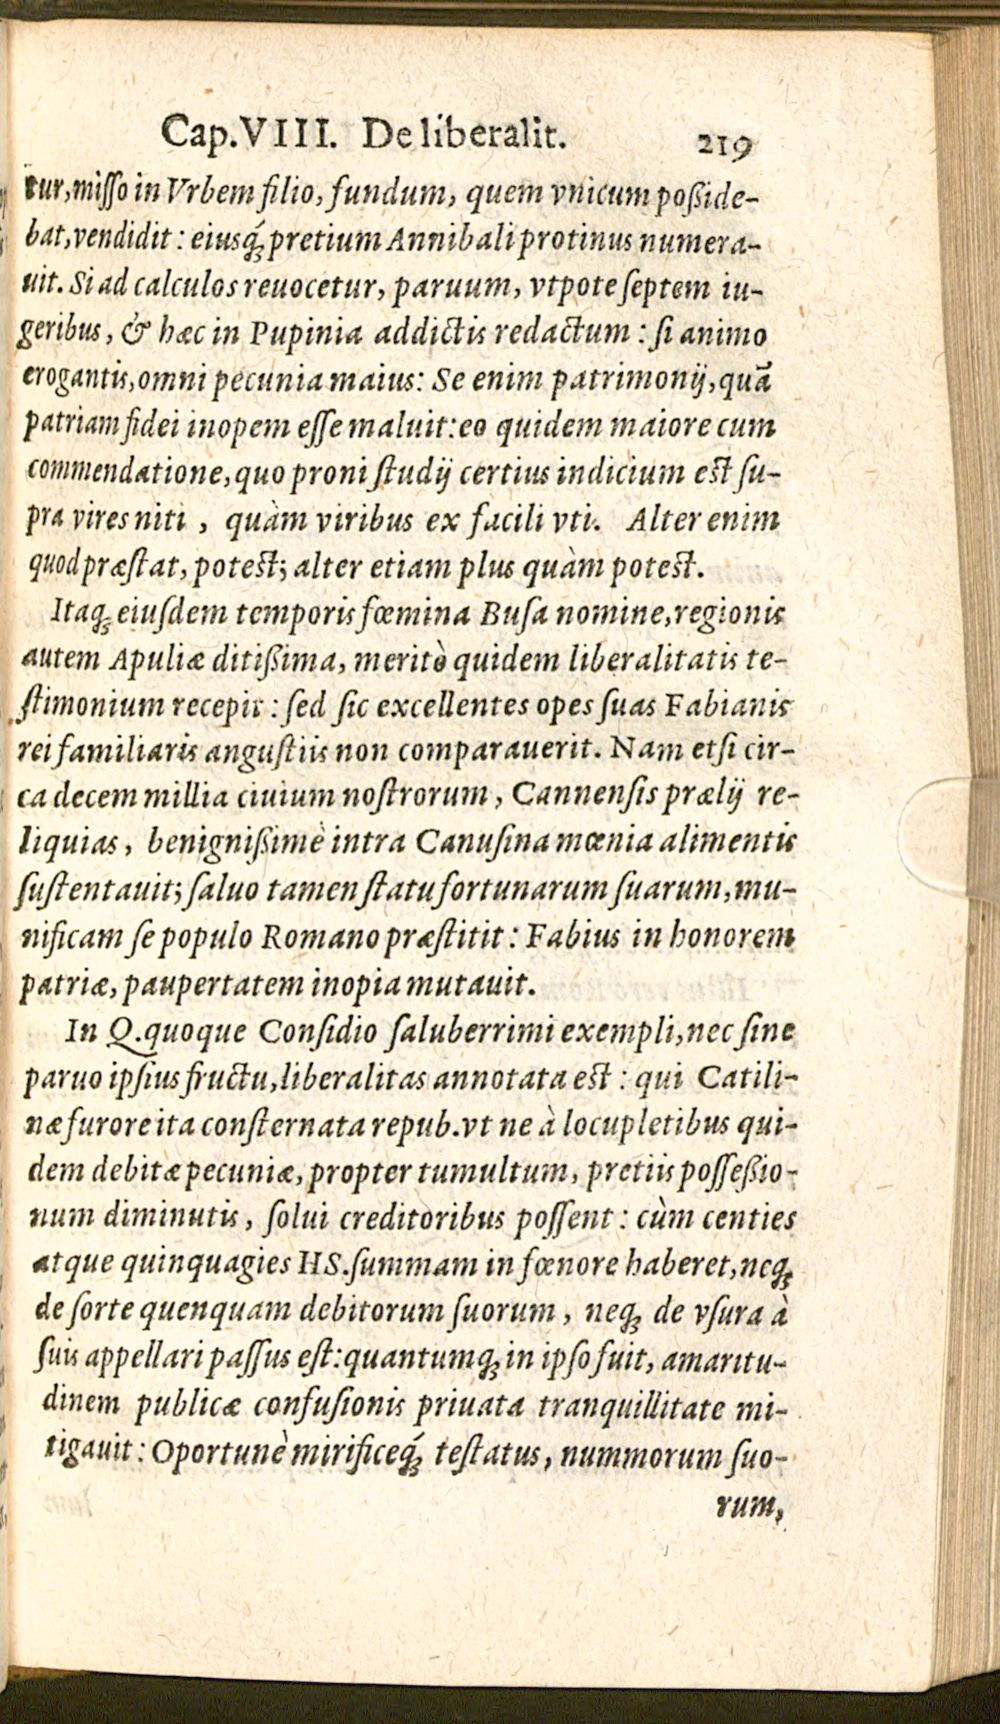 Cap. VIII. De liberalit. 219
tur, misso in Vrbem filio, fundum, quem vnicum poßide-
bat, vendidit: eiusq́; pretium Annibali protinus numera-
uit. Si ad calculos reuocetur, paruum, vtpote septem iu-
geribus, & hæc in Pupinia addictis redactum: si animo
erogantis, omni pecunia maius: Se enim patrimonij, quã
patriam fidei inopem esse maluit: eo quidem maiore cum
commendatione, quo proni studij certius indicium est su-
pra vires niti, quàm viribus ex facili vti. Alter enim
quod præstat, potest; alter etiam plus quàm potest.
Itaq; eiusdem temporis fœmina Busa nomine, regionis
autem Apuliæ ditißima, meritò quidem liberalitatis te-
stimonium recepit: sed sic excellentes opes suas Fabianis
rei familiaris angustiis non comparauerit. Nam etsi cir-
ca decem millia ciuium nostrorum, Cannensis prælij re-
liquias, benignißimè intra Canusina mœnia alimentis
sustentauit; saluo tamen statu fortunarum suarum, mu-
nificam se populo Romano præstitit: Fabius in honorem
patriæ, paupertatem inopia mutauit.
In Q. quoque Considio saluberrimi exempli, nec sine
paruo ipsius fructu, liberalitas annotata est: qui Catili-
næ furore ita consternata repub. vt ne à locupletibus qui-
dem debitæ pecuniæ, propter tumultum, pretiis posseßio-
num diminutis, solui creditoribus possent: cùm centies
atque quinquagies HS. summam in fœnore haberet, neq;
de sorte quenquam debitorum suorum, neq; de vsura à
suis appellari passus est: quantumq; in ipso fuit, amaritu-
dinem publicæ confusionis priuata tranquillitate mi-
tigauit: Oportunè mirificeq́; testatus, nummorum suo-
rum,